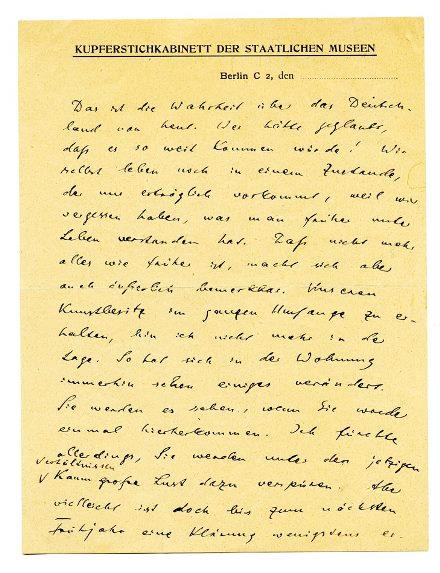 KUPFERSTICHKABINETT DER STAATLICHEN MUSEEN
Berlin C 2, den
Das ist die Wahrheit über das Deutsch-
land von heut. Wer hätte geglaubt,
daß es so weit kommen würde! Wir
selbst leben noch in einem Zustande,
der uns erträglich vorkommt, weil wir
vergessen haben, was man früher unter
Leben verstanden hat. Daß nicht mehr
alles wie früher ist, macht sich aber
auch äußerlich bemerkbar. Unseren
Kunstbesitz im ganzen Umfange zu er-
halten, bin ich nicht mehr in der
Lage. So hat sich in der Wohnung
immerhin schon einiges verändert.
Sie werden es sehen, wenn Sie wieder
einmal hierherkommen. Ich fürchte
allerdings, Sie werden unter den jetzigen
Verhältnissen
V kaum große Lust dazu verspüren. Aber
vielleicht ist doch bis zum nächsten
Frühjahr eine Klärung wenigstens er-